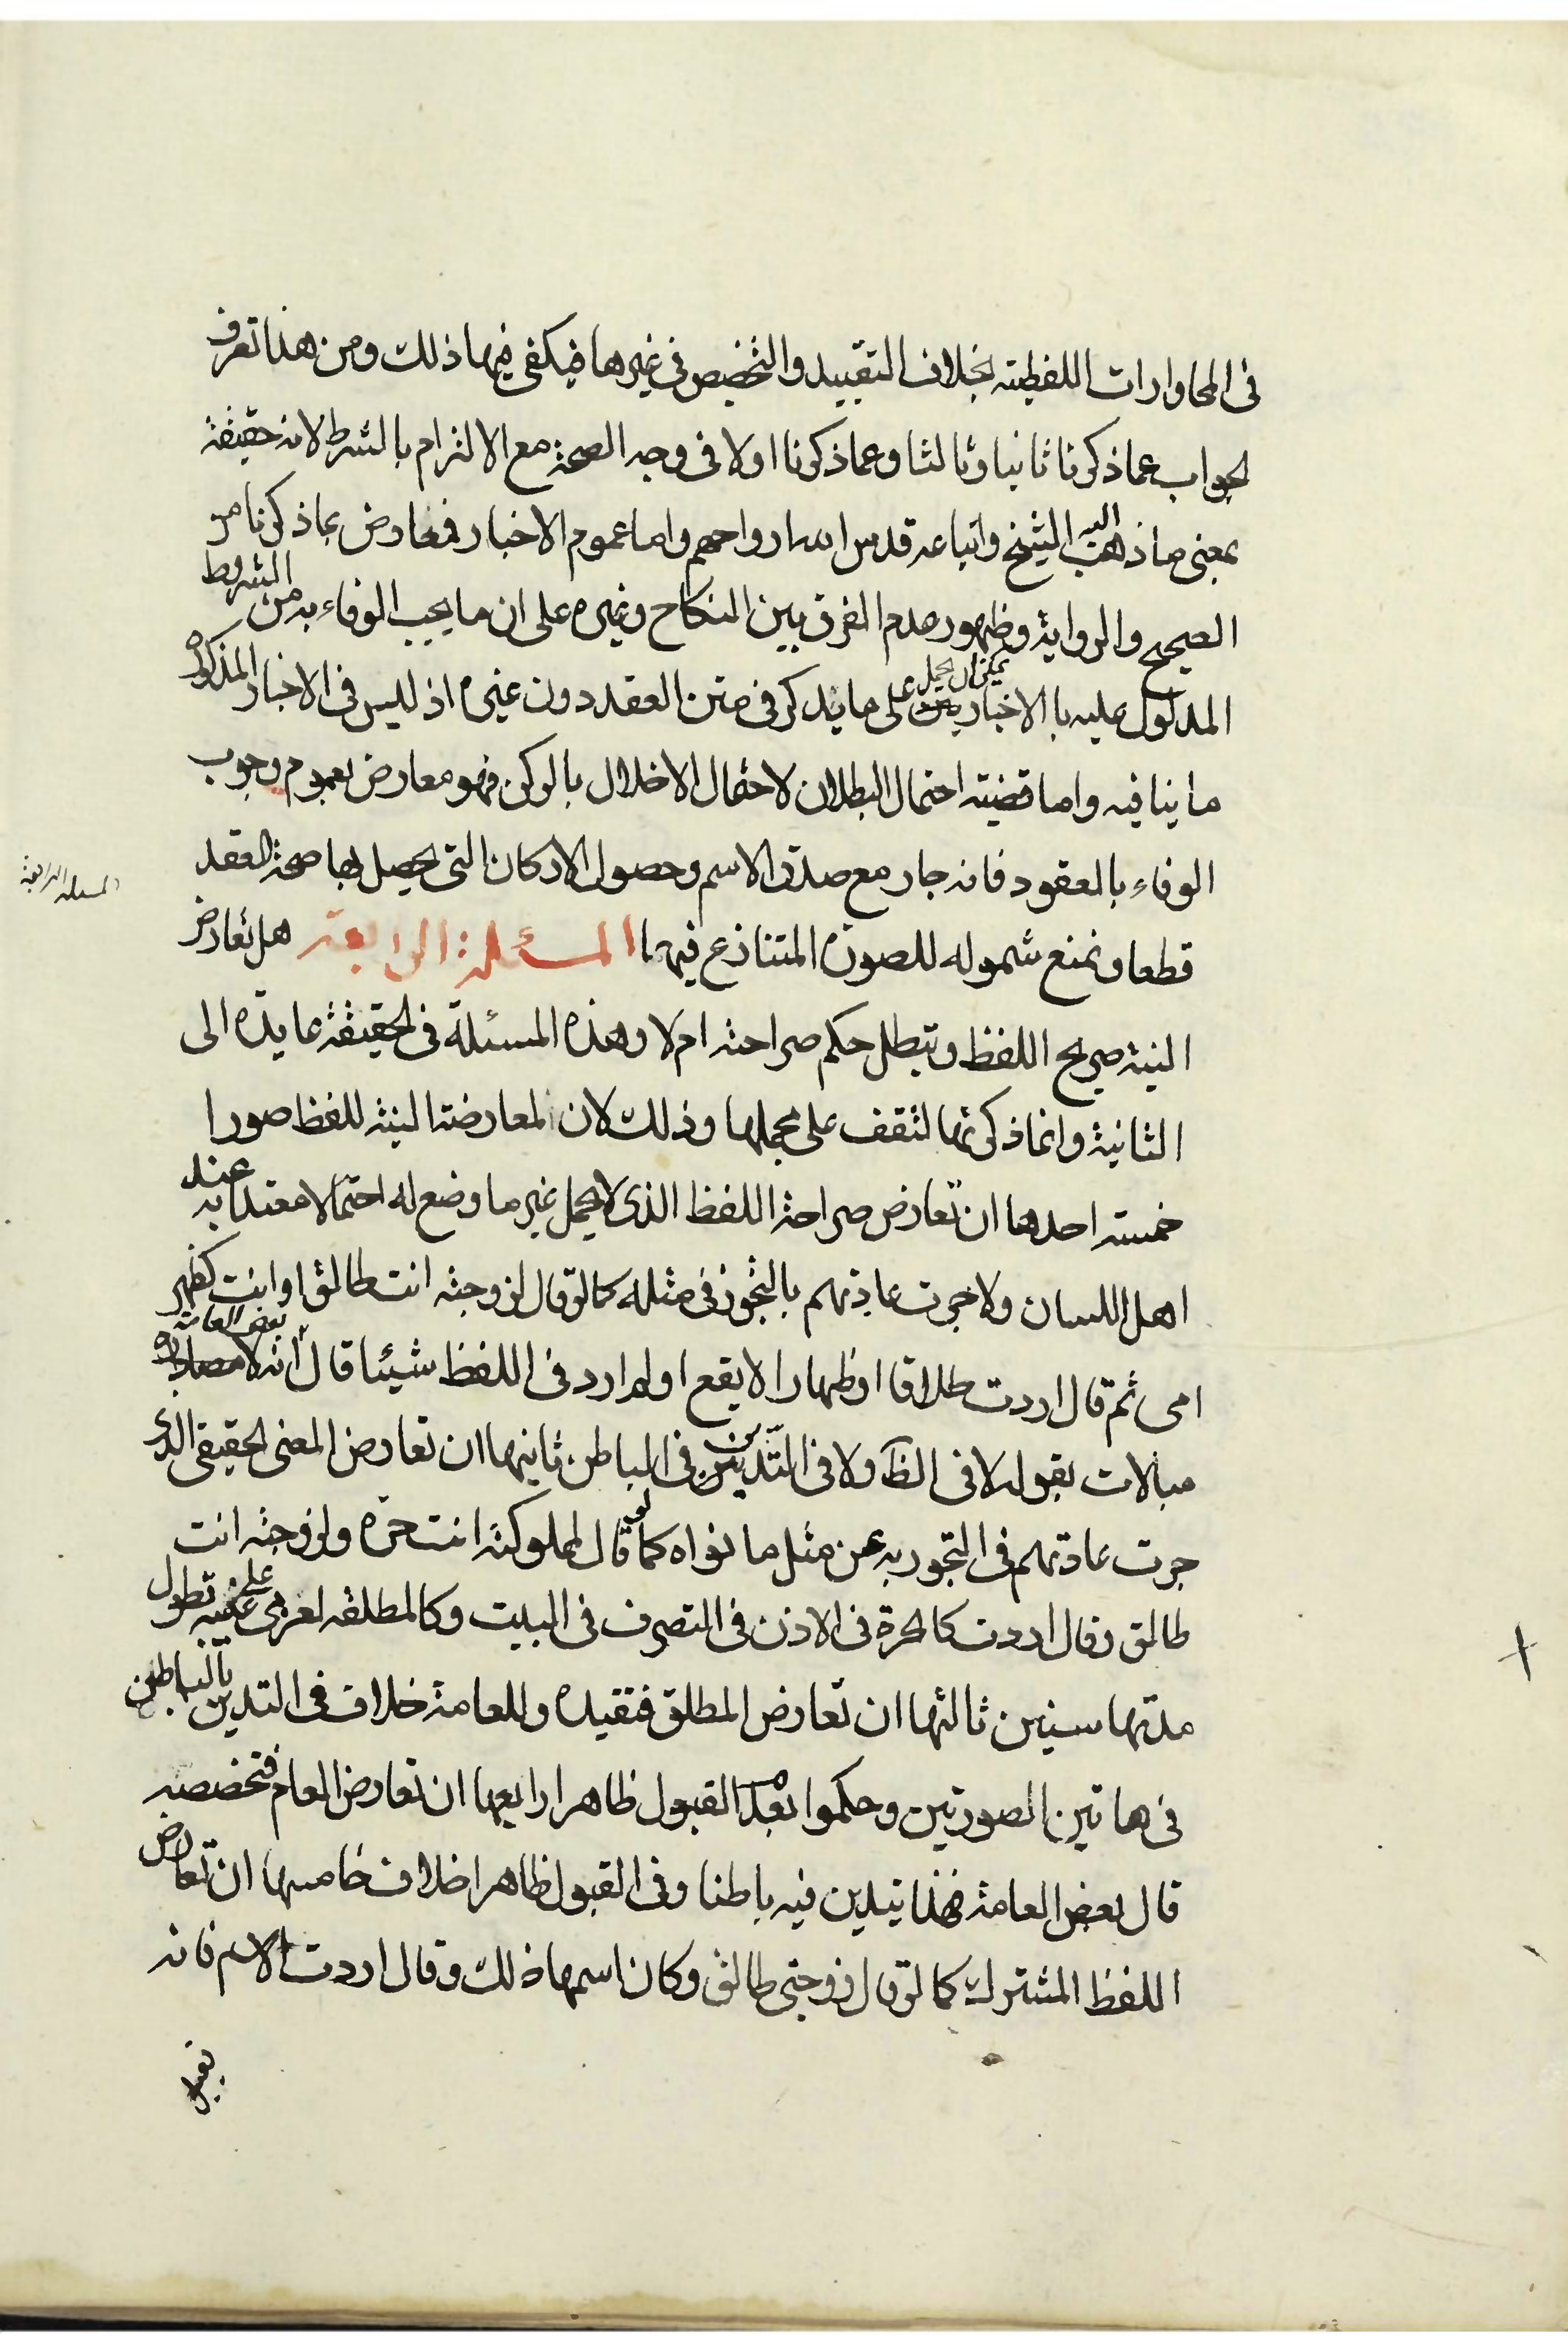 فى المحاورات اللفظية بخلاف التقييد والتخصيص فى غيرها فيكفى فيها ذلك ومن هذا تعرف
الجواب عما ذكرنا ثانيا وثالثا وعما ذكرنا اولا فى وجه الصحة مع الالتزام بالشرط لانه حقيقة
بمعنى ما ذهب اليه الشيخ واتباعه قدس الله ارواحهم واما عموم الاخبار فمعارض بما ذكرنا من
الصحيح والرواية وظهور عدم الفرق بين النكاح وغيره على ان ما يجب الوفاء به من الشروط
المدلول عليه باالاخبار يمكن ان يحمل على ما يذكر فى متن العقد دون غيره اذ ليس فى الاخبار المذكوره
ما ينافيه واما قضيته احتمال البطلان لاحتمال الاخلال بالركن فهو معارض بعموم وجوب
الوفاء بالعقود فانه جار مع صدق الاسم وحصول الاركان التى يحصل بها صحة العقد
المسئلة الرابعة
قطعا ونمنع شموله للصورة المتنازع فيها المسئلة الرابعة هل تعارض
النية صريح اللفظ وتبطل حكم صراحته ام لا وهذه المسئلة فى الحقيقة عايدة الى
الثانية وانما ذكرتها لتقف على مجملها وذلك لان المعارضة النية للفظ صورا
خمسة احدها ان تعارض صراحة اللفظ الذى لا يحمل غير ما وضع له احتمالا معتدا به عند
اهل اللسان ولا جرت عادتهم بالتجوز فى مثله كما لو قال لزوجته انت طالق او انت كظهر
امى ثم قال اردت طلاقا او ظهارا لا يقع او لم ارد فى اللفظ شيئا قال بعض العامة انه لا
مبالات بقوله لا فى الظآ ولا فى التديين فى الباطن ثانيها ان تعارض المعنى الحقيقى الذى
جرت عادتهم فى التجوز به عن مثل ما نواه كما لو قال لمملوكته انت حرة ولزوجته انت
طالق وقال اردت كالحرة فى الاذن فى التصرف فى البيت وكالمطلقة لعزمى على غيبه تطول
مدتها سنين ثالثها ان تعارض المطلق فتقيده وللعامة خلاف فى التدين بالباطن
فى هاتين الصورتين وحكموا بعدم القبول ظاهرا رابعها ان تعارض العام فتخصصه
قال بعض العامة فهذا تيدين فيه باطنا وفى القبول ظاهرا خلاف خامسها ان تعارض
اللفظ المشترك كما لو قال زوجتى طالق وكان اسمها ذلك وقال اردت الاسم فانه
تقبل